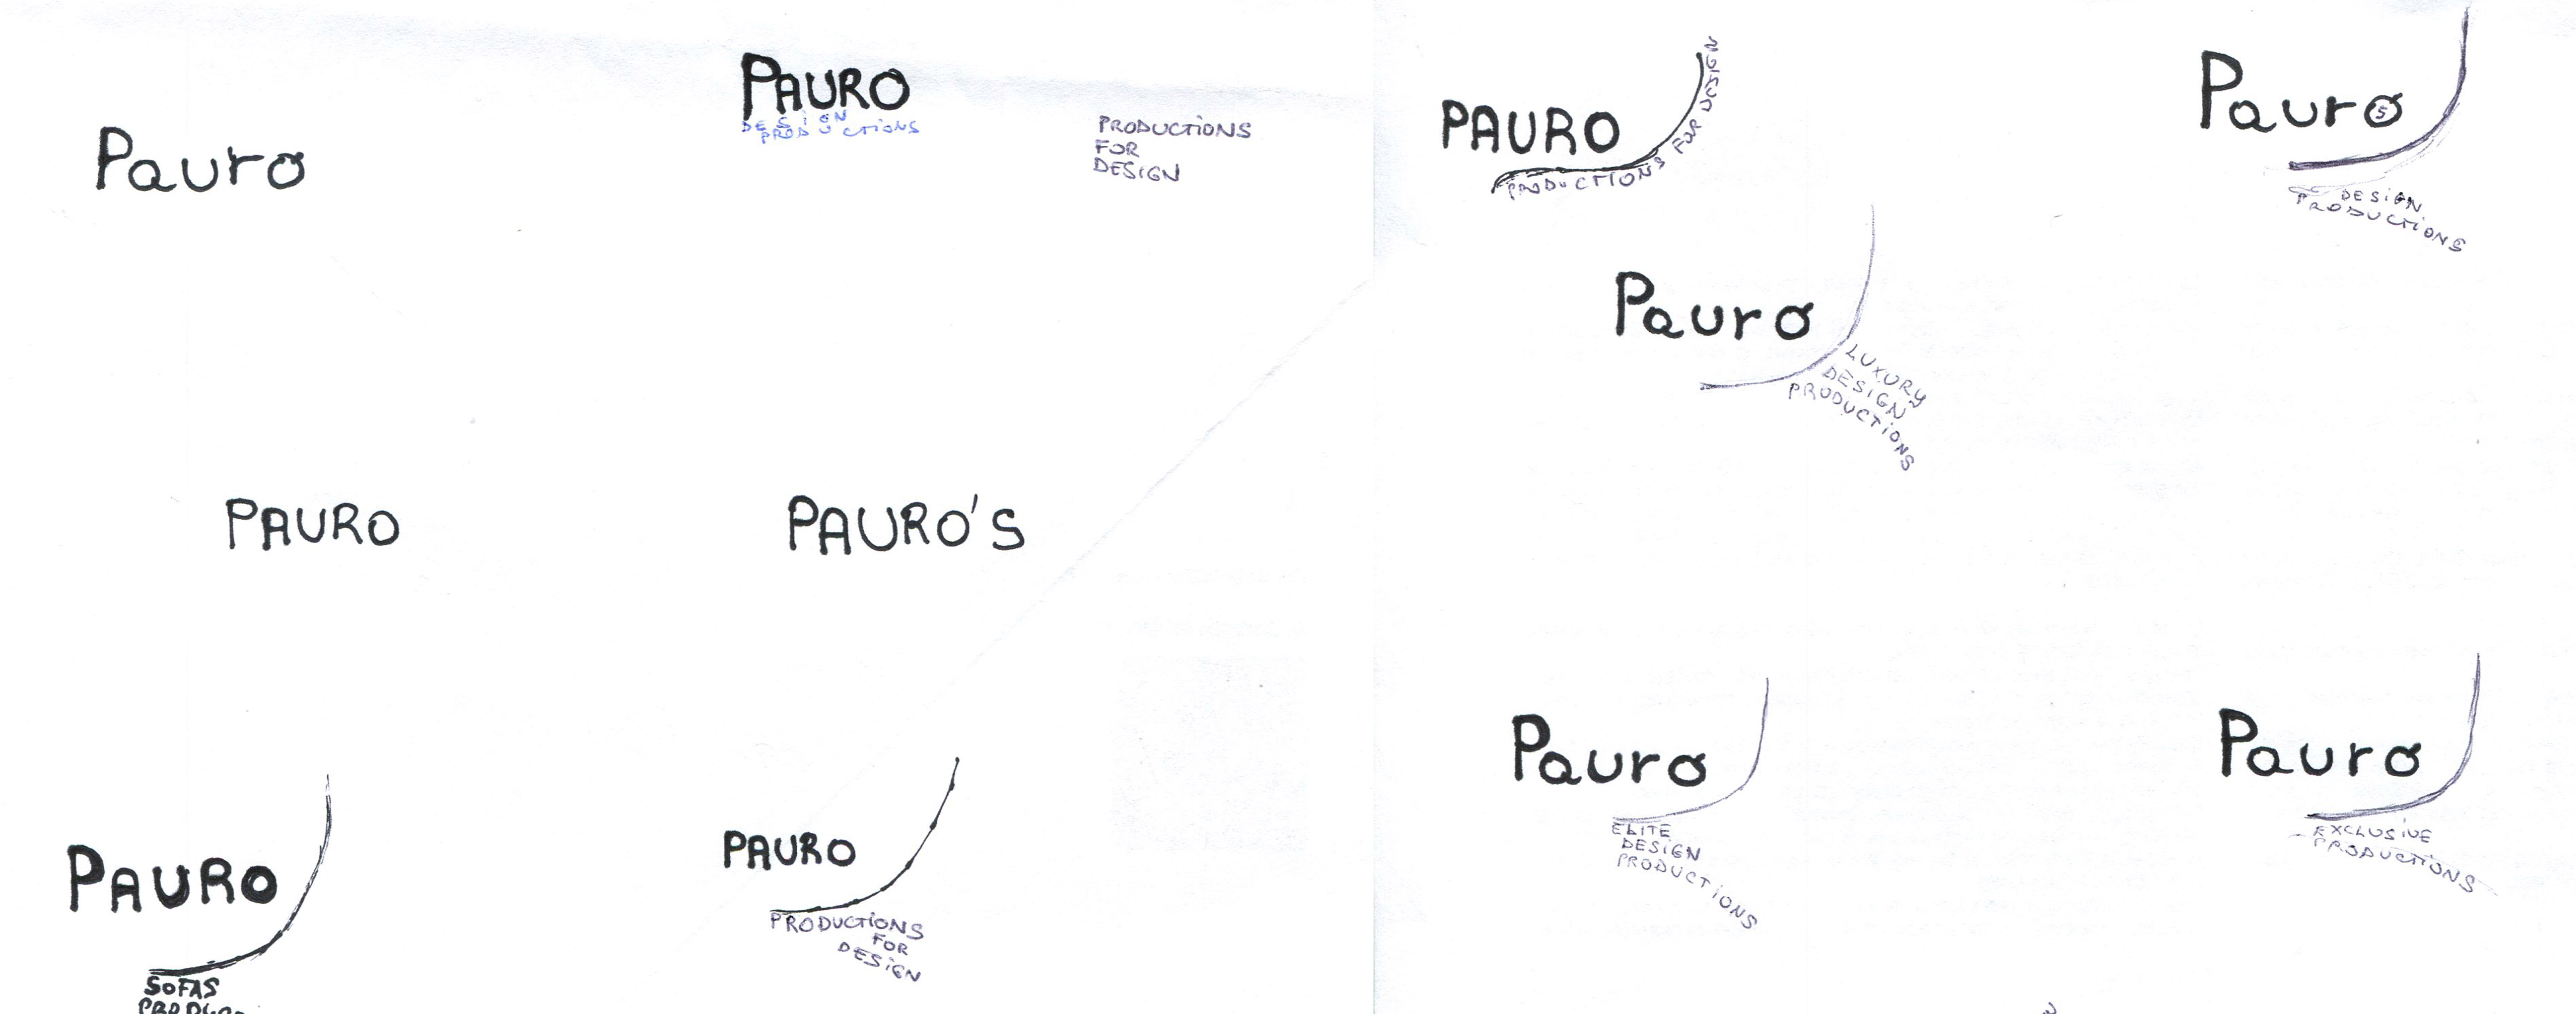 Pauro
PAURO
DESIGN
PRODUCTIONS
PRODUCTIONS
FOR
DESIGN
PAURO
PAURO'S
PAURO
SOFAS
PAURO
PRODUCTIONS
FOR
DESIGN
PAURO
PRODUCTIONS FOR DESIGN
Pauro
S
DESIGN
PRODUCTIONS
Pauro
LUXURY
DESIGN
PRODUCTIONS
Pauro
ELITE
DESIGN
PRODUCTIONS
Pauro
EXCLUSIVE
PRODUCTIONS